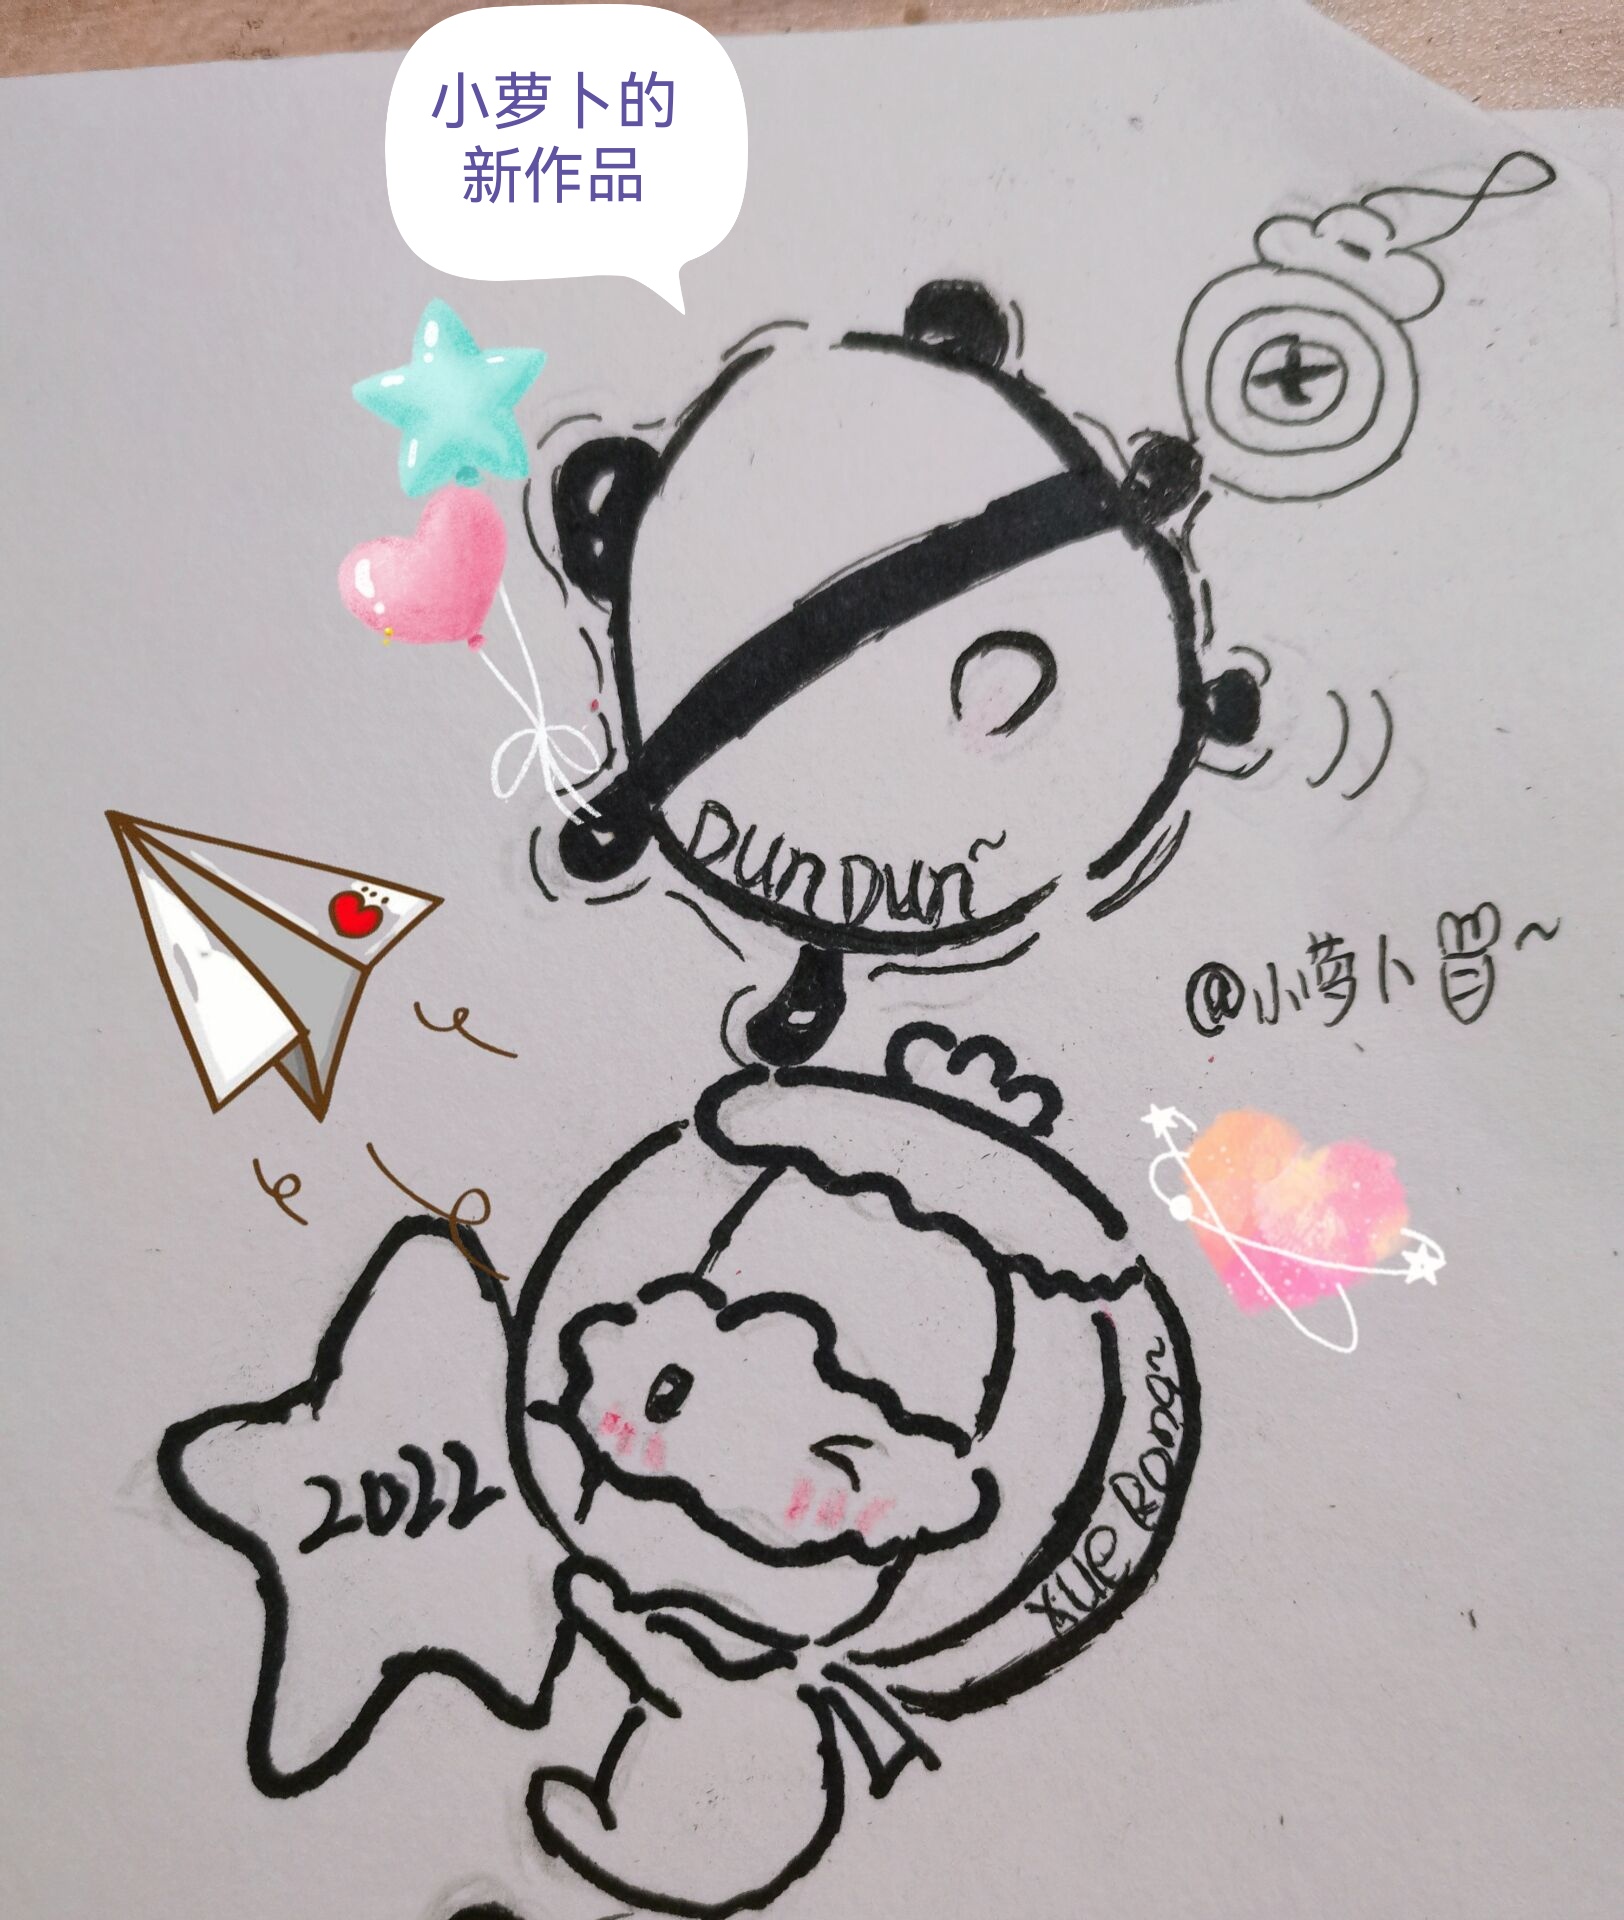 小萝卜的
新作品
DunDun~
@小萝卜~
2022
XUE Rong~